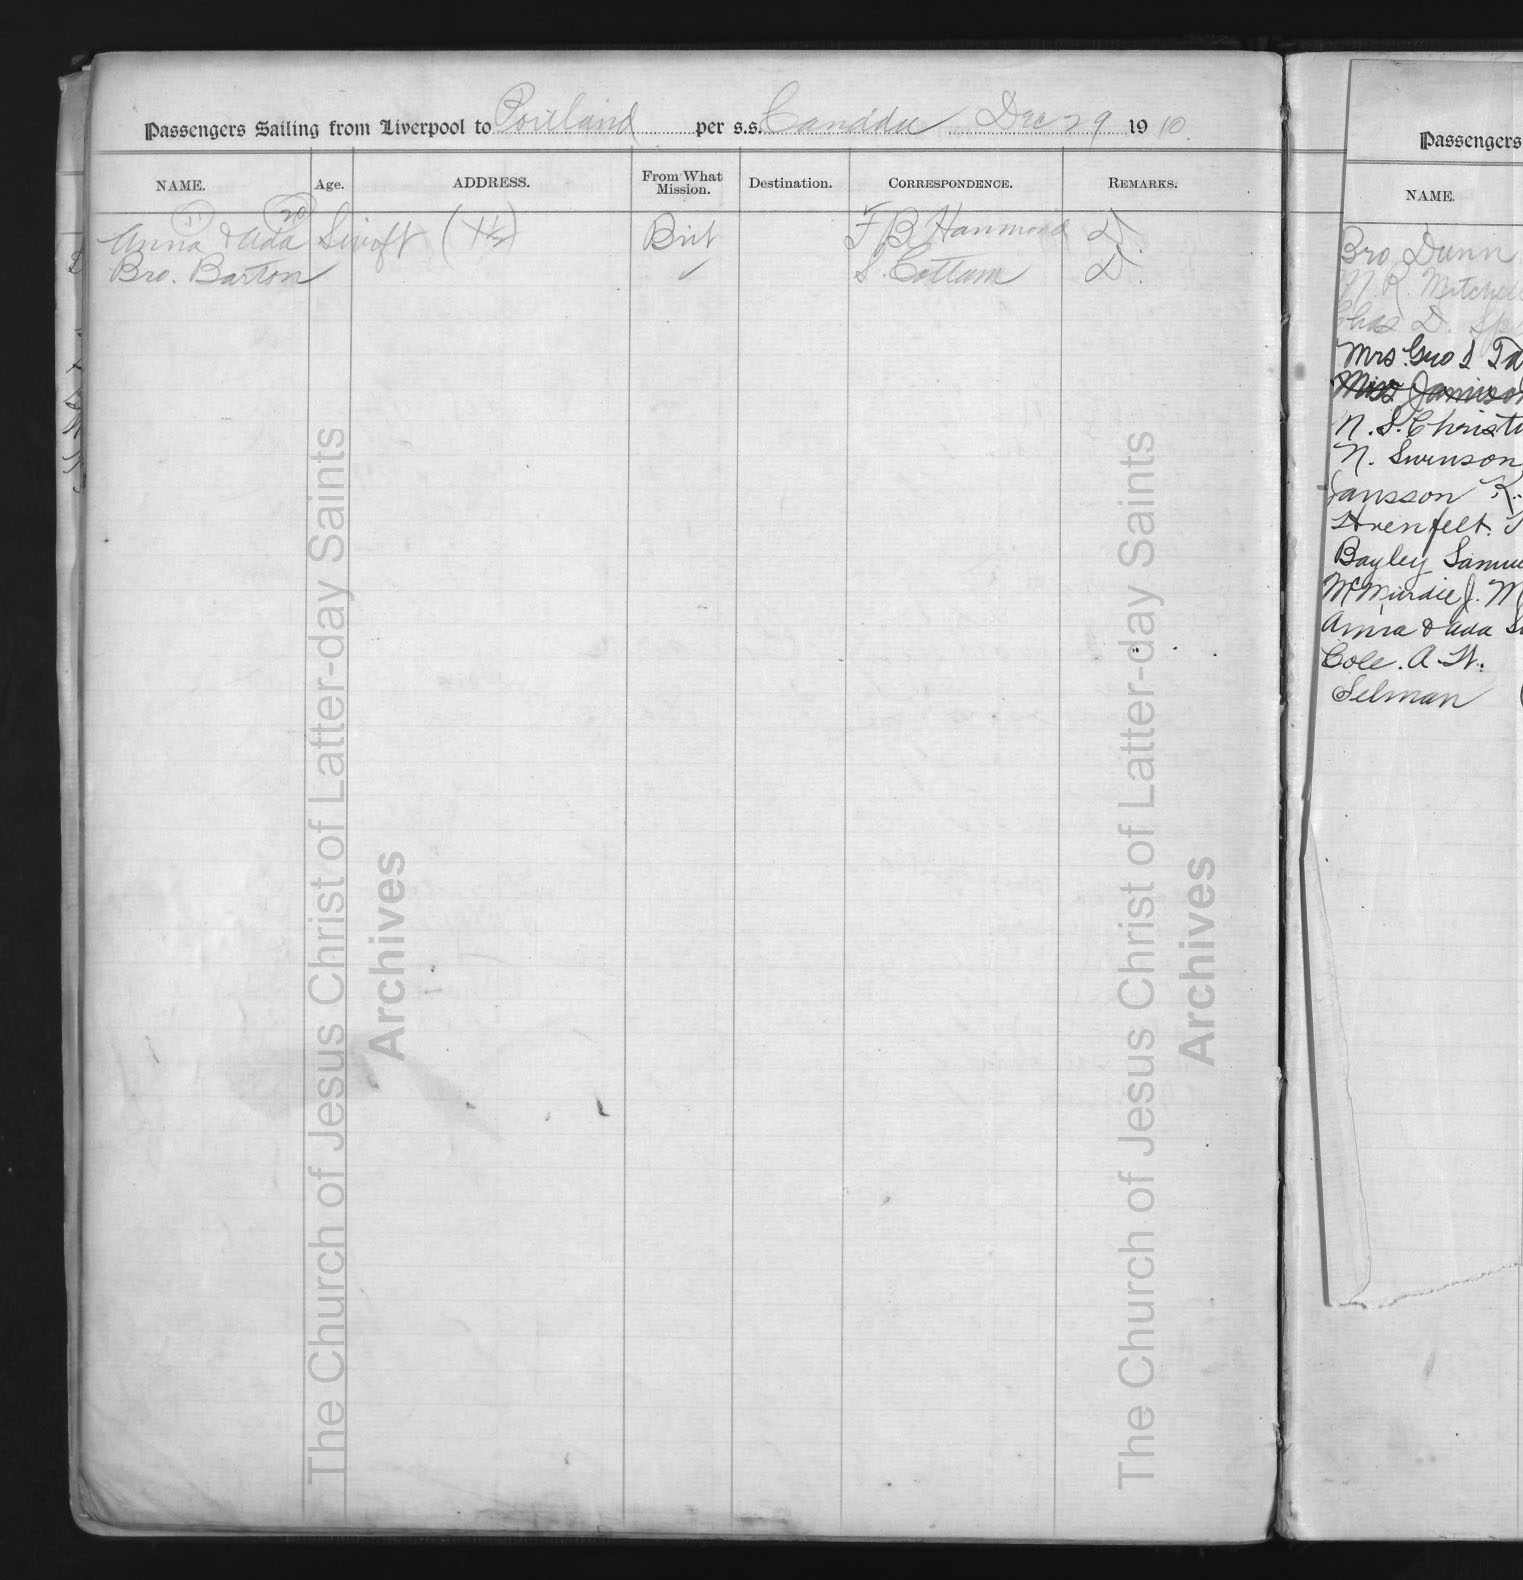 Passengers Sailing from Liverpool to Portland per s.s. Canada Dec 29 1910.
NAME. Age. ADDRESS. From What Mission. Destination. CORRESPONDENCE. REMARKS.
11 20
Anna & Ada Swift (1½) Brit F B Hammond D.
Bro. Barton ✓ S. Cottam D.
Passengers
NAME.
Bro Dunn
N. R. Mitchell
Chas D. Spe
Mrs. Geo S Ta
Miss Jamison
N. S. Christ
N. Swenson
Jansson K.
Bayley Samu
McMurdie J. M
Anna & Ada S
Cole. A. W.
Selman (
The Church of Jesus Christ of Latter-day Saints
Archives
The Church of Jesus Christ of Latter-day Saints
Archives